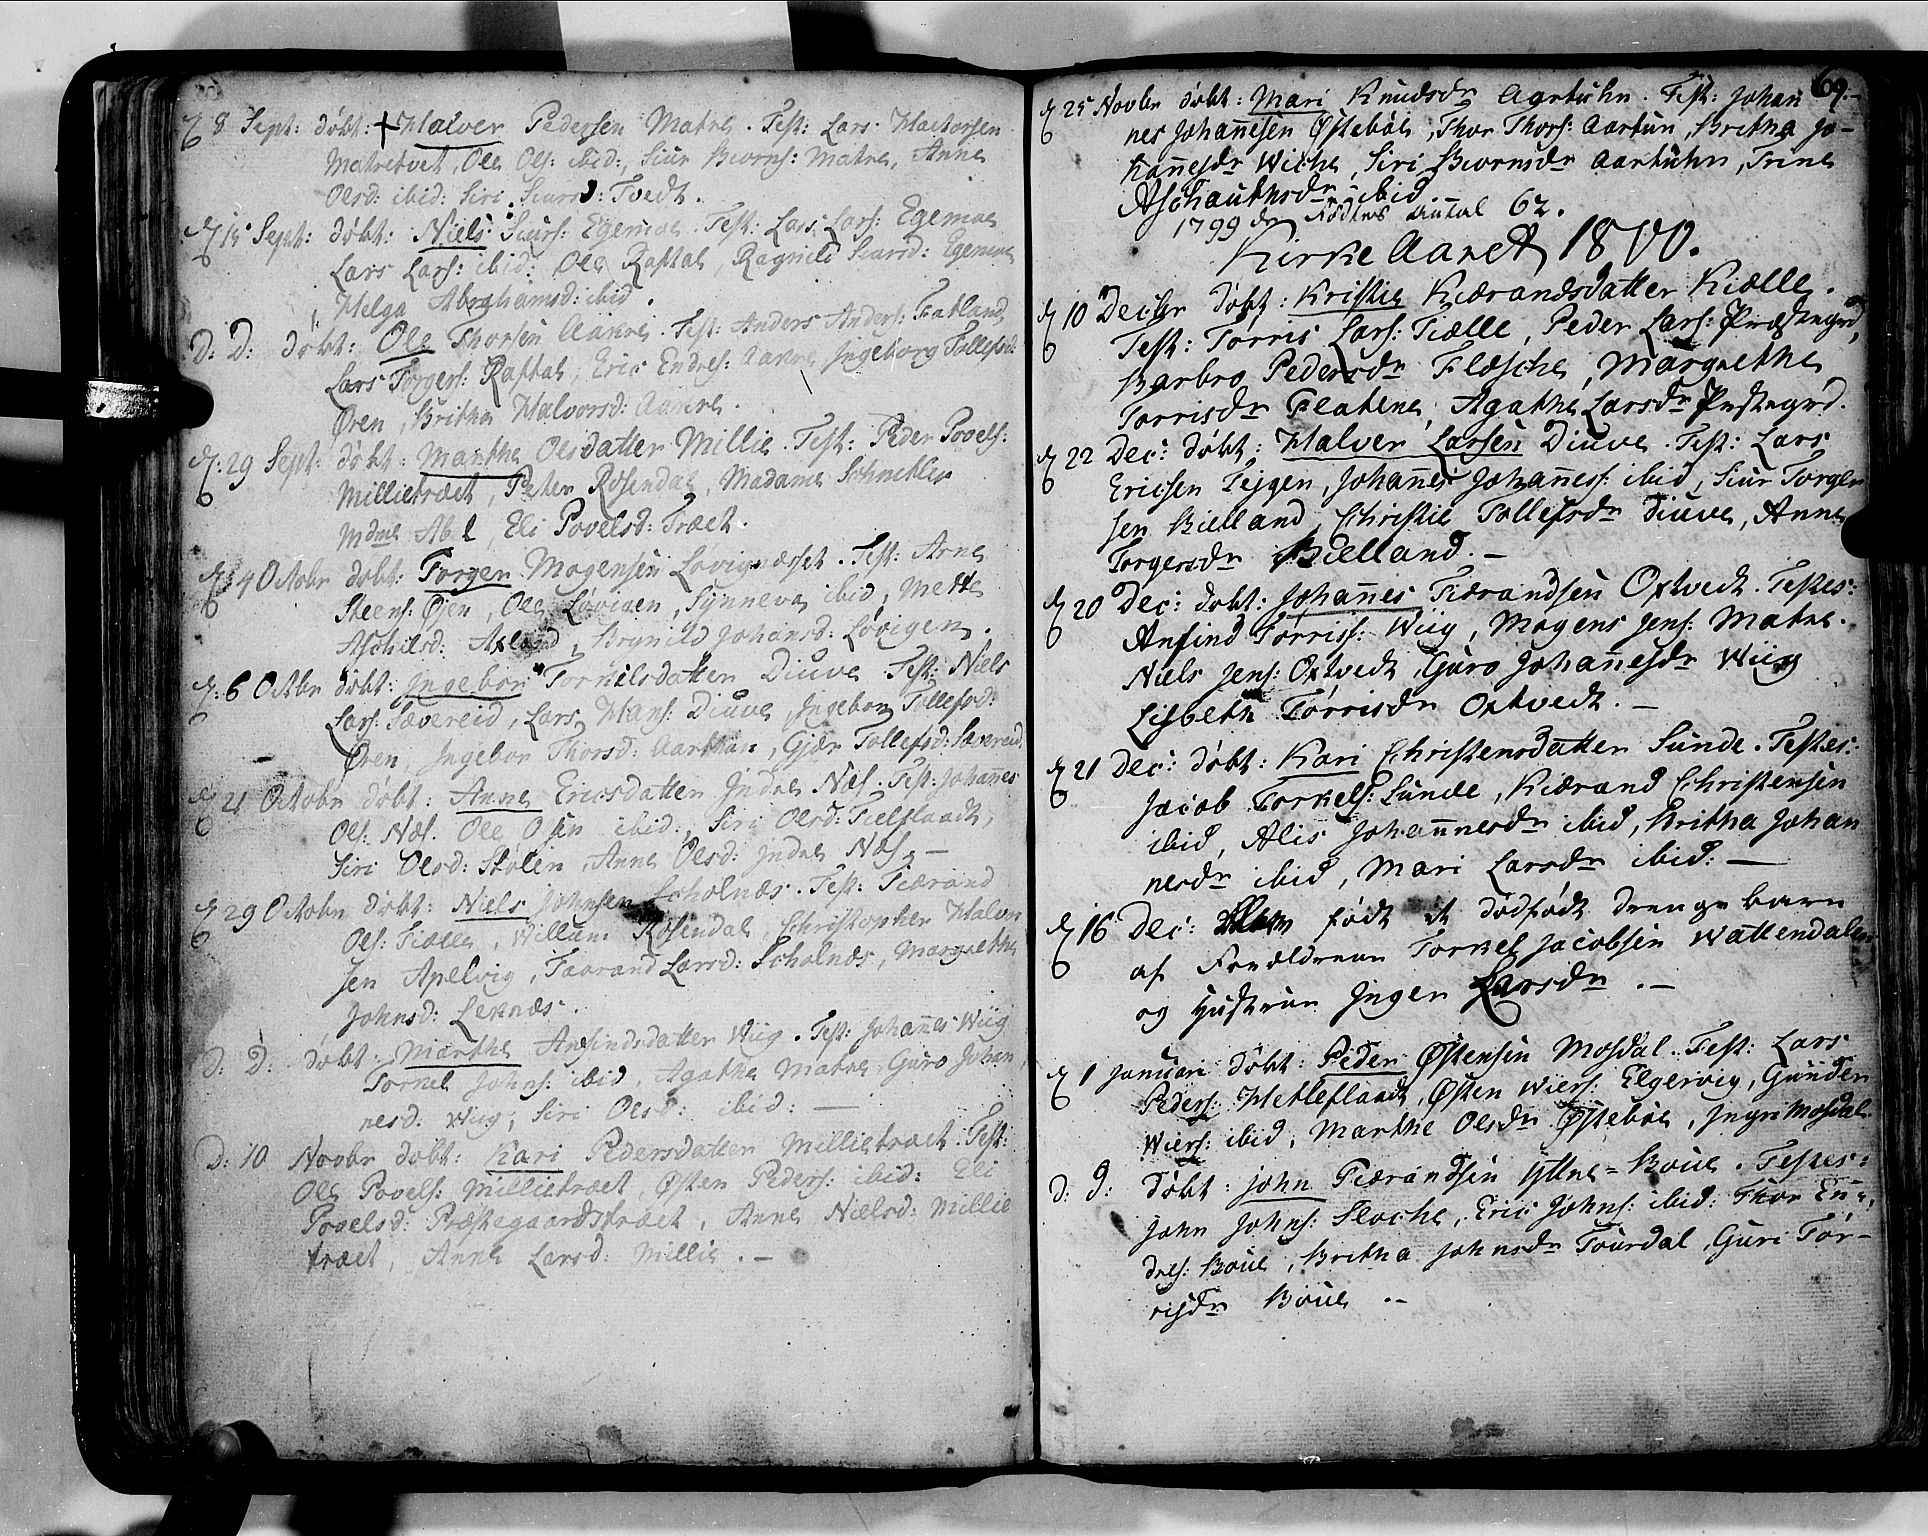 d 8 Sept: døbt: + Halver Pedersen Matre. Test: Lars Halvorsen
Matretvet, Ole Ols: ibid:, Siur Biorns: Matre, Anne
Olsd: ibid: Siri Siursd: Tvedt.
d 15 Sept: døbt: Niels Siurs: Egemoe. Test: Lars Lars: Egemoe
Lars Lars: ibid: Ole Raftal, Ragnild Siursd: Egemoe
Helga Abrahamsd: ibid.
D: D: døbt: Ole Thorsen Aakre. Test: Anders Anders: Fatland
Lars Torgers: Raftal, Eric Endres: Aakre, Ingeborg Tollefsd:
Øren, Britha Halvorsd: Aakre.
d: 29 Sept: døbt: Marthe Olsdatter Millie. Test: Peder Povels:
Millietræet, Peter Rosendal, Madame Schnekler
Mdme Abel, Eli Povelsd: Træet.
d 14 Octobr døbt: Torger Mogensen Lovignæsset. Test: Arne
Steens: Øjen, Ole Løvigen, Synneva ibid, Mette
Aschilsd: Axland, Brynild Johansd: Løvigen.
d: 6 Octbr døbt: Ingebor Torkilsdatter Diuve Test: Niels
Lars: Sævereid, Lars Hans: Diuve, Ingebor Tollefsd:
Øren, Ingebor Thorsd: Aarthun, Gjør Tollefsd: Sævereid
d 21 Octobr døbt: Anne Ericsdatter Indre Næs. Test: Johannes
Ols: Næs. Ole Olsen ibid:, Siri Olsd: Fielstaadt,
Siri Olsd: Stølen, Anne Olsd: Indre Næs. —
d 29 Octobr døbt: Niels Johnsen Scholnæs. Test: Tiærand
Ols: Tiælle, Willum Rosendal, Christopher Halvor
sen Apelvig, Taarand Larsd: Scholnæs, Margrethe
Johnsd: Leknæs.
D: D: døbt: Marthe Anfindsdatter Wiig. Test: Johannes Wiig
Torkel Johns: ibid, Agathe Matre, Guro Johan
nesd: Wiig, Siri Olsd: ibid: —
D: 10 Novbr døbt: Kari Pedersdatter Millietræet. Test:
Ole Povels: Millietræet, Østen Peders: ibid: Eli
Povelsd: Præstegaardstræet, Anne Nielsd: Millie
træet, Anne Larsd: Millie. —
69.
d 25 Novbr døbt: Mari Knudsdr Aartuhn. Test: Johan
nes Johannesen Østebøe, Thor Thors: Aartun, Britha Jo-
hannesdr Wiche, Siri Biornsdr Aartuhn, Trine
Aschauthsdr ibid
1799 de Fødtes Antal 62.
Kirke Aaret 1800.
d 10 Decbr døbt: Kristie Kiærandsdatter Kiælle.
Test: Torris Lars: Tiælle, Peder Lars: Præstegrd,
Barbro Pedersdr Flæsche, Margrethe
Torrisdr Flatene, Agathe Larsdr Pæstegrd.
d 22 Dec: døbt: Halver Larsen Diuve. Test: Lars
Ericsen Tejgen, Johannes Johanness: ibid, Siur Torger
sen Bielland, Christie Tollefsdr Diuve, Anne
Torgersdr Bielland. —
d 20 Dec: døbt: Johannes Tiærandsen Oxtvedt. Testes:
Anfind Torriss: Wiig, Mogens Jens: Matre.
Niels Jens: Oxtvedt, Guro Johannesdr Wiig
Lisbeth Torrisdr Oxtvedt. —
d 21 Dec: døbt: Kari Christensdatter Sunde. Testes:
Jacob Torkels: Sunde, Kiærand Christensen
ibid, Alis Johannesdr ibid, Britha Johan
nesdr ibid, Mari Larsdr ibid: —
d 16 Dec: født et dødfødt drenge barn
af Forældrene Torkel Jacobsen Wattendalen
og Hustrue Inger Larsdr. —
d 1 Januari døbt: Peder Østensen Mosdal. Test: Lars
Peders: Hetleflaadt, Østen Wiers: Elgervig, Gunder
Wiers: ibid, Marthe Olsdr Østebøe, Ingri Mosdal.
D: D: døbt: John Tiærandsen Yttre-Boue. Testes:
John Johns: Sloche, Eric Johns: ibid: Thor En-
dres: Boue, Britha Johnsdr Tourdal, Guri Tor-
risdr Boue. —